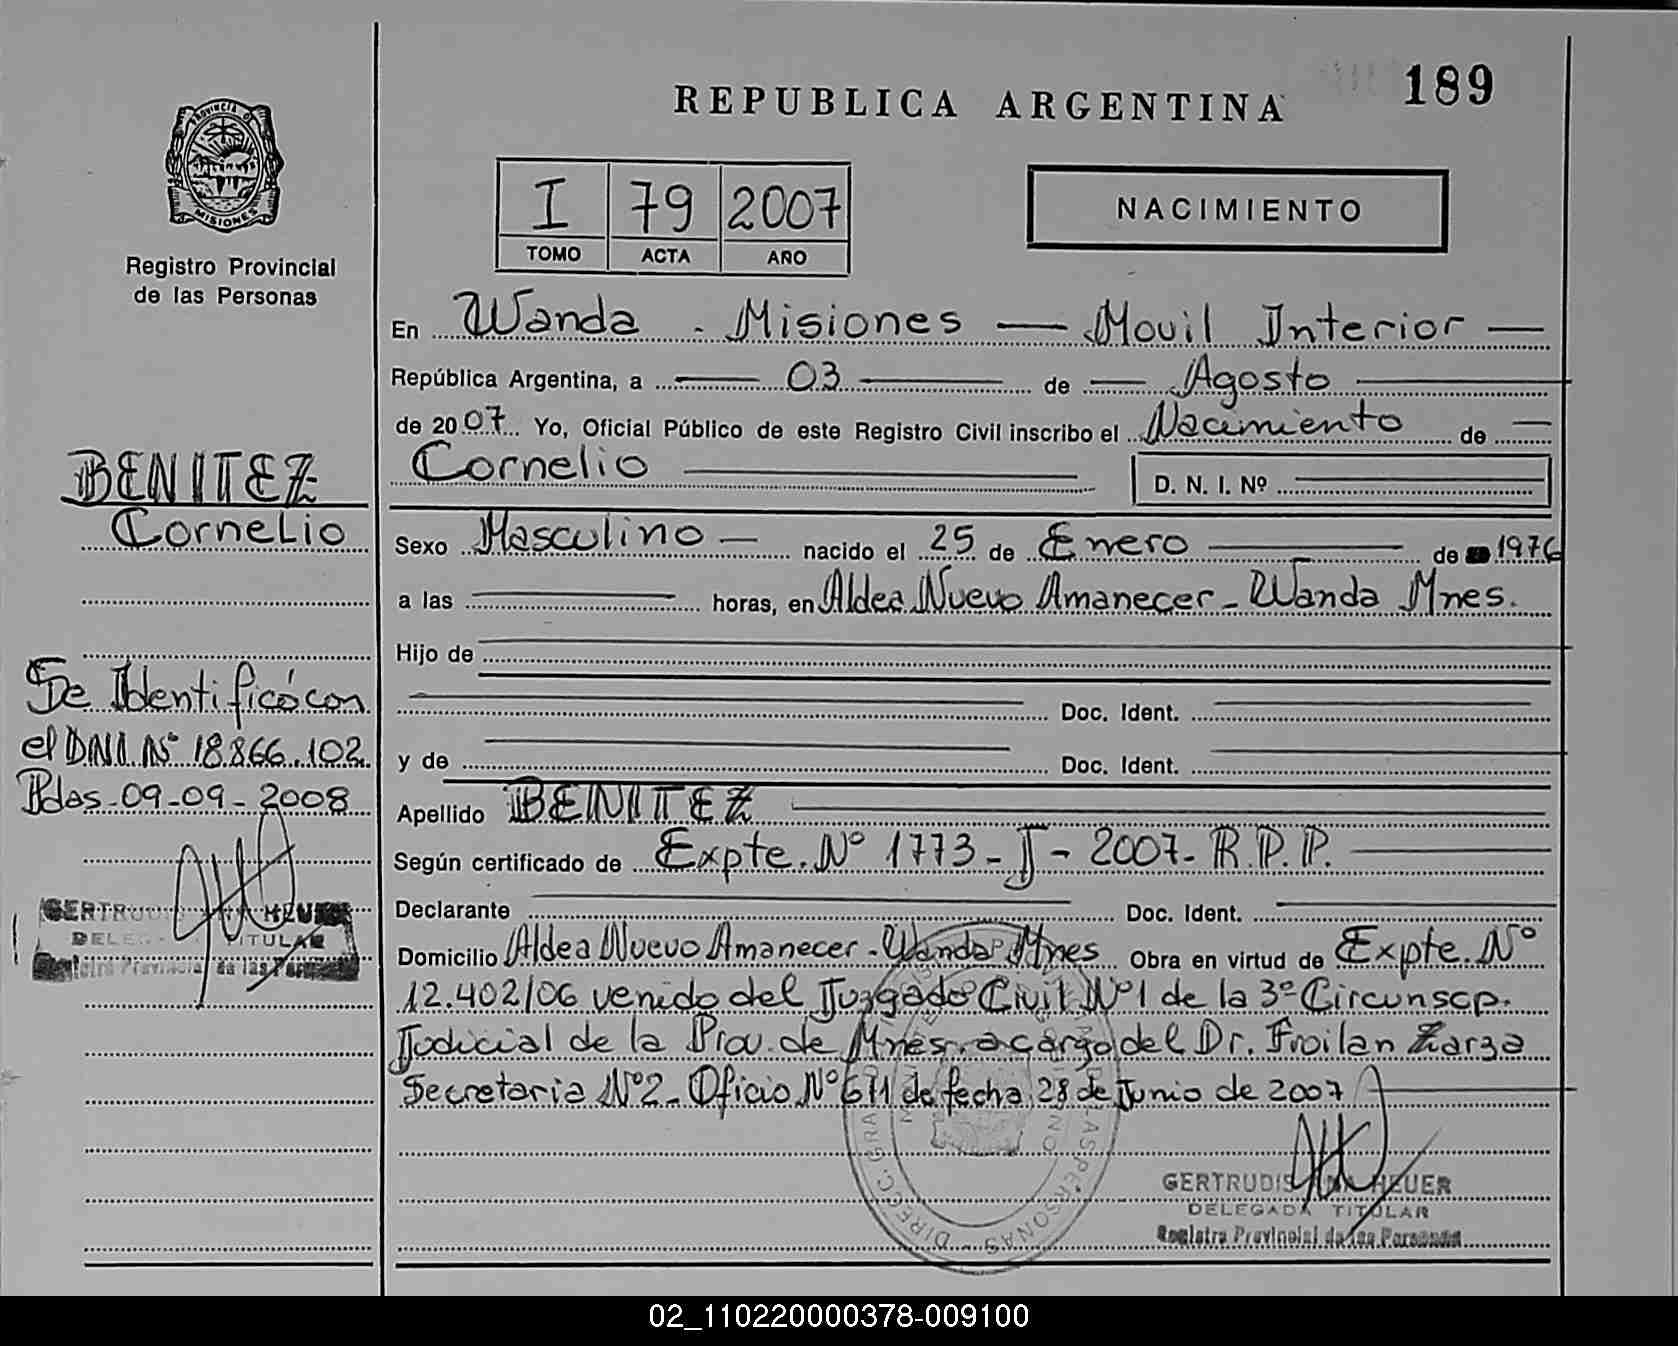 189
REPUBLICA ARGENTINA
PROVINCIA DE
MISIONES
Registro Provincial
de las Personas
I 79 2007
TOMO ACTA AÑO
NACIMIENTO
En Wanda - Misiones — Movil Interior —
República Argentina, a — 03 — de — Agosto —
de 2007 Yo, Oficial Público de este Registro Civil inscribo el Nacimiento de —
Cornelio — D. N. I. Nº —
Sexo Masculino — nacido el 25 de Enero — de 1976
a las — horas, en Aldea Nuevo Amanecer - Wanda Mnes.
Hijo de —
— Doc. Ident. —
y de — Doc. Ident. —
Apellido BENITEZ —
Según certificado de Expte. Nº 1773 - J - 2007 - R.P.P. —
Declarante — Doc. Ident. —
Domicilio Aldea Nuevo Amanecer - Wanda Mnes Obra en virtud de Expte. Nº
12.402/06 venido del Juzgado Civil Nº1 de la 3º Circunscp.
Judicial de la Prov. de Mnes. a cargo del Dr. Froilan Zarza
Secretaria Nº2 - Oficio Nº 611 de fecha 28 de Junio de 2007 —
GERTRUDIS HEUER
DELEGADA TITULAR
Registro Provincial de las Personas
BENITEZ
Cornelio
Se Identificó con
el DNI. Nº 18.866.102
Pdas - 09-09-2008
GERTRUDIS HEUER
DELEGADA TITULAR
Registro Provincial de las Personas
DIRECC. GRAL DE LAS PERSONAS
02_110220000378-009100